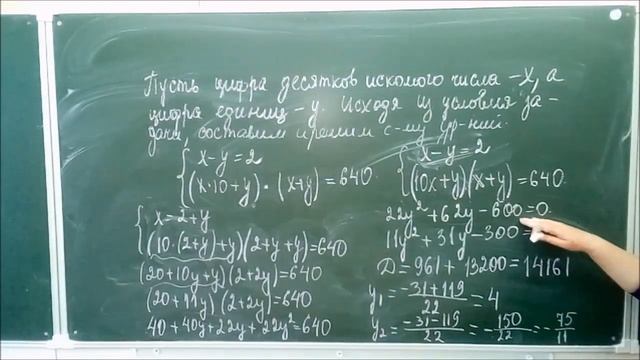 Пусть цифра десятков искомого числа – x, а
цифра единиц – y. Исходя из условия за-
дачи составим и решим с-му ур-ний.
{ x – y = 2
(x·10+y)·(x+y)=640
{ x = 2+y
(10·(2+y)+y)(2+y+y)=640
(20+10y+y)(2+2y)=640
(20+11y)(2+2y)=640
40+40y+22y+22y²=640
{ x – y = 2
(10x+y)(x+y)=640
22y²+62y–600=0
11y²+31y–300=
D=961+13200=14161
y₁=(-31+119)/22=4
y₂=(-31-119)/22=-150/22=-75/11